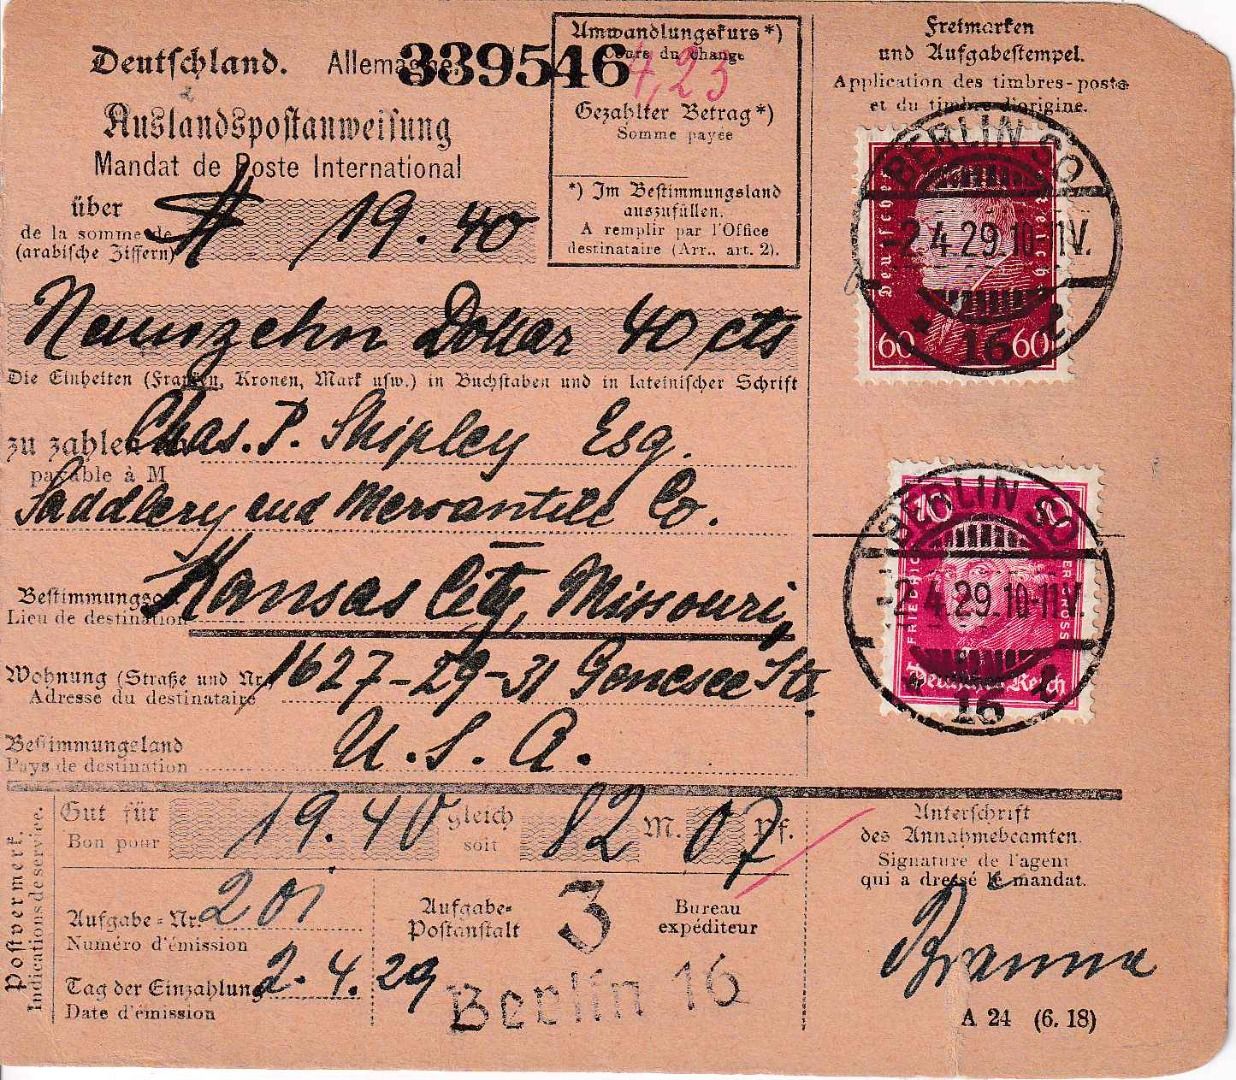 Deutschland. Allemagne.
339546
Auslandspostanweisung
Mandat de Poste International
über
de la somme de
(arabische Ziffern)
$ 19.40
Umwandlungskurs *)
Cours du change
4,23
Gezahlter Betrag *)
Somme payée
*) Im Bestimmungsland
auszufüllen.
A remplir par l'Office
destinataire (Arr., art. 2).
Freimarken
und Aufgabestempel.
Application des timbres-poste
et du timbre d'origine.
BERLIN SO
Deutsches Reich
-2.4.29.10-11V.
60 60
* 16 l
Neunzehn Dollar 40 cts
Die Einheiten (Franken, Kronen, Mark usw.) in Buchstaben und in lateinischer Schrift
zu zahlen an Chas. P. Shipley Esq.
payable à M
Saddlery and Mercantile Co.
Bestimmungsort Kansas City, Missouri,
Lieu de destination
Wohnung (Straße und Nr.) 1627-29-31 Genesee Sts.
Adresse du destinataire
Bestimmungsland U.S.A.
Pays de destination
BERLIN SO
FRIEDRICH DER GROSSE
-2.4.29.10-11V.
Deutsches Reich
* 16 l
Postvermerk.
Indications de service.
Gut für 19.40 gleich 82 M. 07 Pf.
Bon pour soit
Aufgabe-Nr. 201
Numéro d'émission
Tag der Einzahlung 2.4.29
Date d'émission
Aufgabe-
Postanstalt
3
Bureau
expéditeur
Berlin 16
Unterschrift
des Annahmebeamten.
Signature de l'agent
qui a dressé le mandat.
A 24 (6.18)